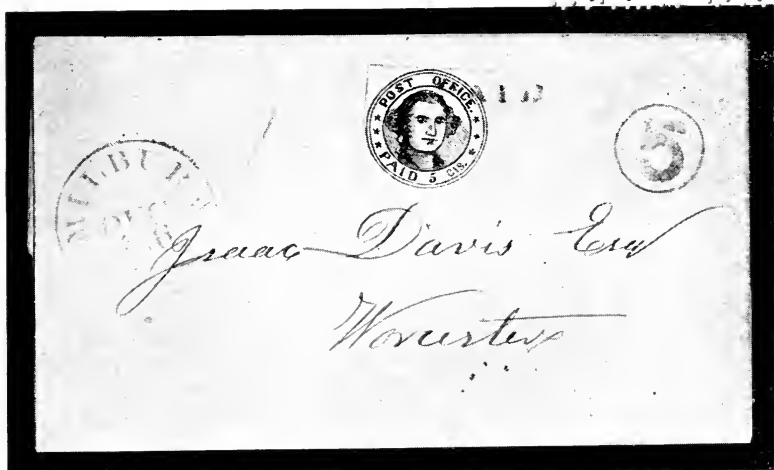 POST OFFICE.
PAID 5 CTS.
5
MILLBURY
Isaac Davis Esq
Worcester